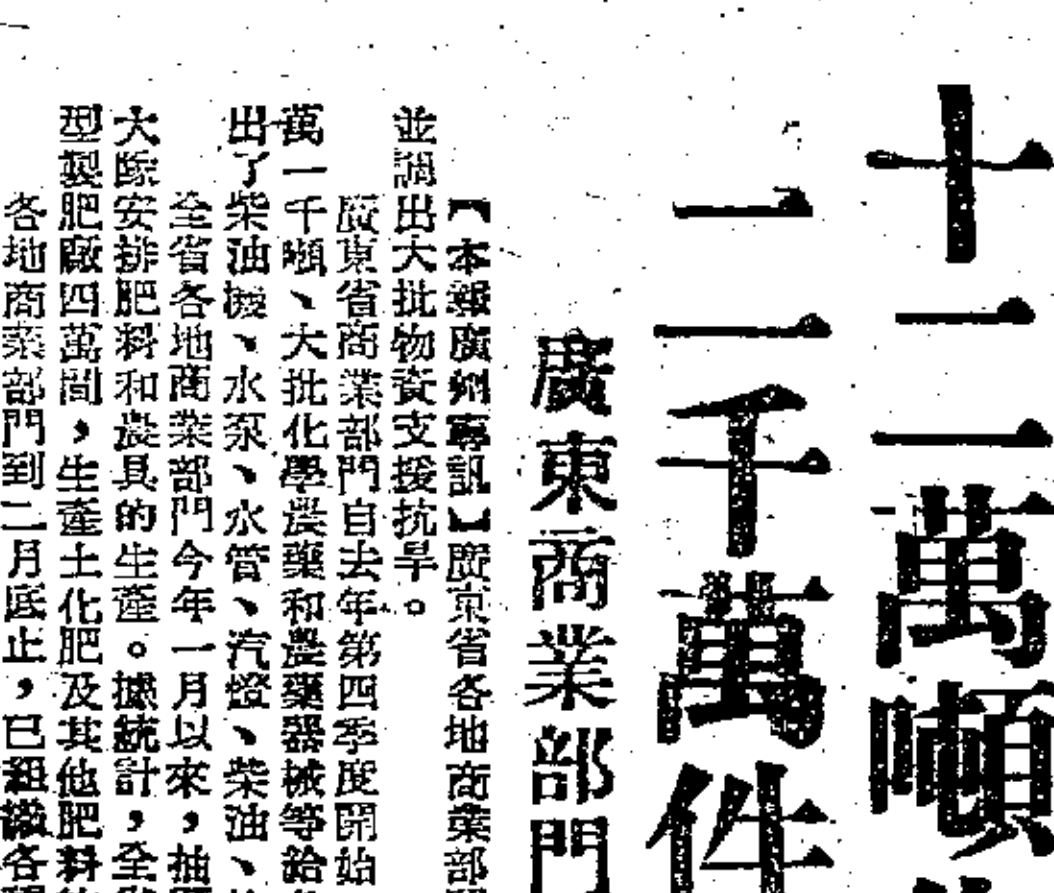 十二萬噸
一二千萬件
廣東商業部門
【本報廣州專訊】廣東省各地商業部
並調出大批物資支援抗旱。
廣東省商業部門自去年第四季度開始
萬一千噸、大批化學農藥和農藥器械等給
出了柴油機、水泵、水管、汽燈、柴油、
全省各地商業部門今年一月以來，抽
大隊安排肥料和農具的生產。據統計，全
型製肥廠四萬間，生產土化肥及其他肥料
各地商業部門到二月底止，已組織各